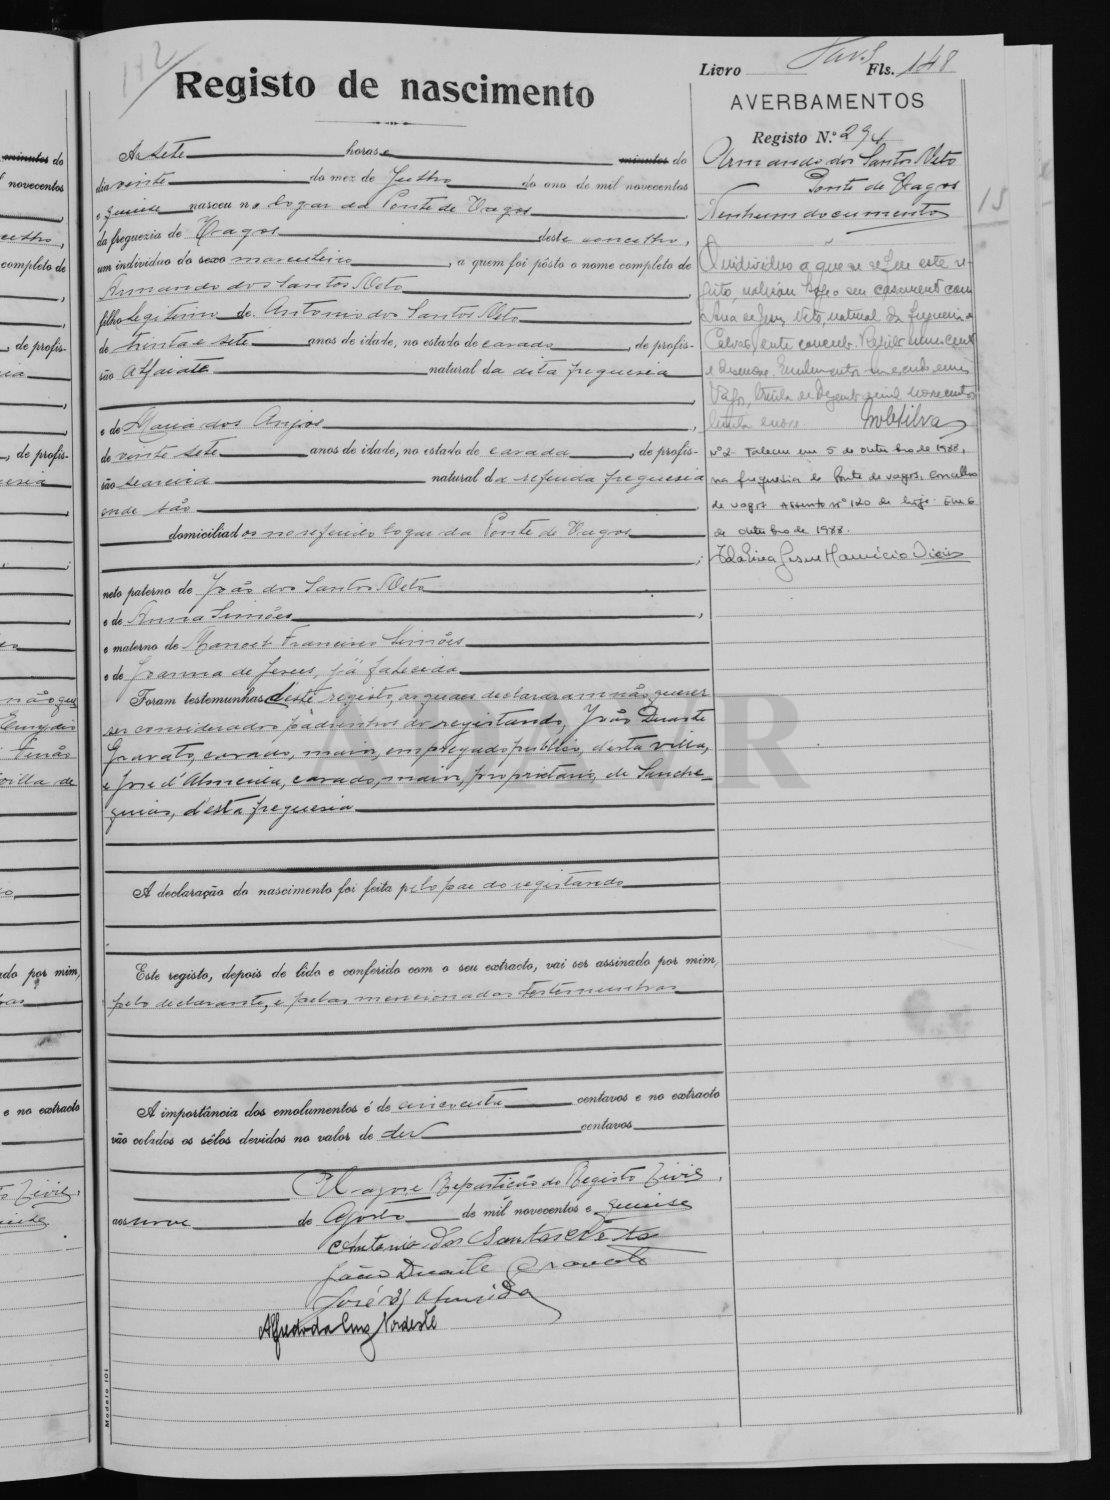 Registo de nascimento
Livro Fls. 148
AVERBAMENTOS
Registo N.º 294
Armando dos Santos Neto
Ponte de Vagos
Nenhum documento
As sete horas e minutos do
dia vinte do mez de Julho do ano de mil novecentos
e quinse nasceu no logar da Ponte de Vagos
da freguezia de Vagos deste concelho,
um individuo do sexo masculino, a quem foi pôsto o nome completo de
Armando dos Santos Neto
filho legitimo de Antonio dos Santos Neto
de trinta e sete anos de idade, no estado de casado, de profis-
são Alfaiate natural da dita freguesia
e de Maria dos Anjos
de vinte sete anos de idade, no estado de casada, de profis-
são natural da referida freguesia
onde são
domiciliados no referido logar da Ponte de Vagos
neto paterno de João dos Santos Neto
e de Anna Simões
e materno de Manoel Francisco Simões
e de Joanna de Jesus, já falecida
Foram testemunhas d'este registo, as quaes declararam não querer
ser considerados padrinhos do registando, João Duarte
Gravato, casado, maior, empregado publico, d'esta villa,
e José d'Almeida, casado, maior, proprietario, de Sanche-
quias, d'esta freguesia
A declaração do nascimento foi feita pelo pae do registando
Este registo, depois de lido e conferido com o seu extracto, vai ser assinado por mim,
pelo declarante, e pelas mencionadas testemunhas
A importância dos emolumentos é de cincoenta centavos e no extracto
vão colados os sêlos devidos no valor de dez centavos
Vagos e Repartição do Registo Civil,
aos nove de Agosto de mil novecentos e quinse
Antonio dos Santos Neto
João Duarte Gravato
José d'Almeida
Alfredo da Cruz Nordeste
O individuo a que se refere este re-
gisto, seu casamento com
de Jesus Neto, natural da freguesia de
Calvão, deste concelho.
Nº 2 - Faleceu em 5 de outubro de 1988,
na freguesia de Ponte de Vagos, concelho
de Vagos Assento Nº 120 de hoje. Em 6
de outubro de 1988.
Modelo 101
ADAVR